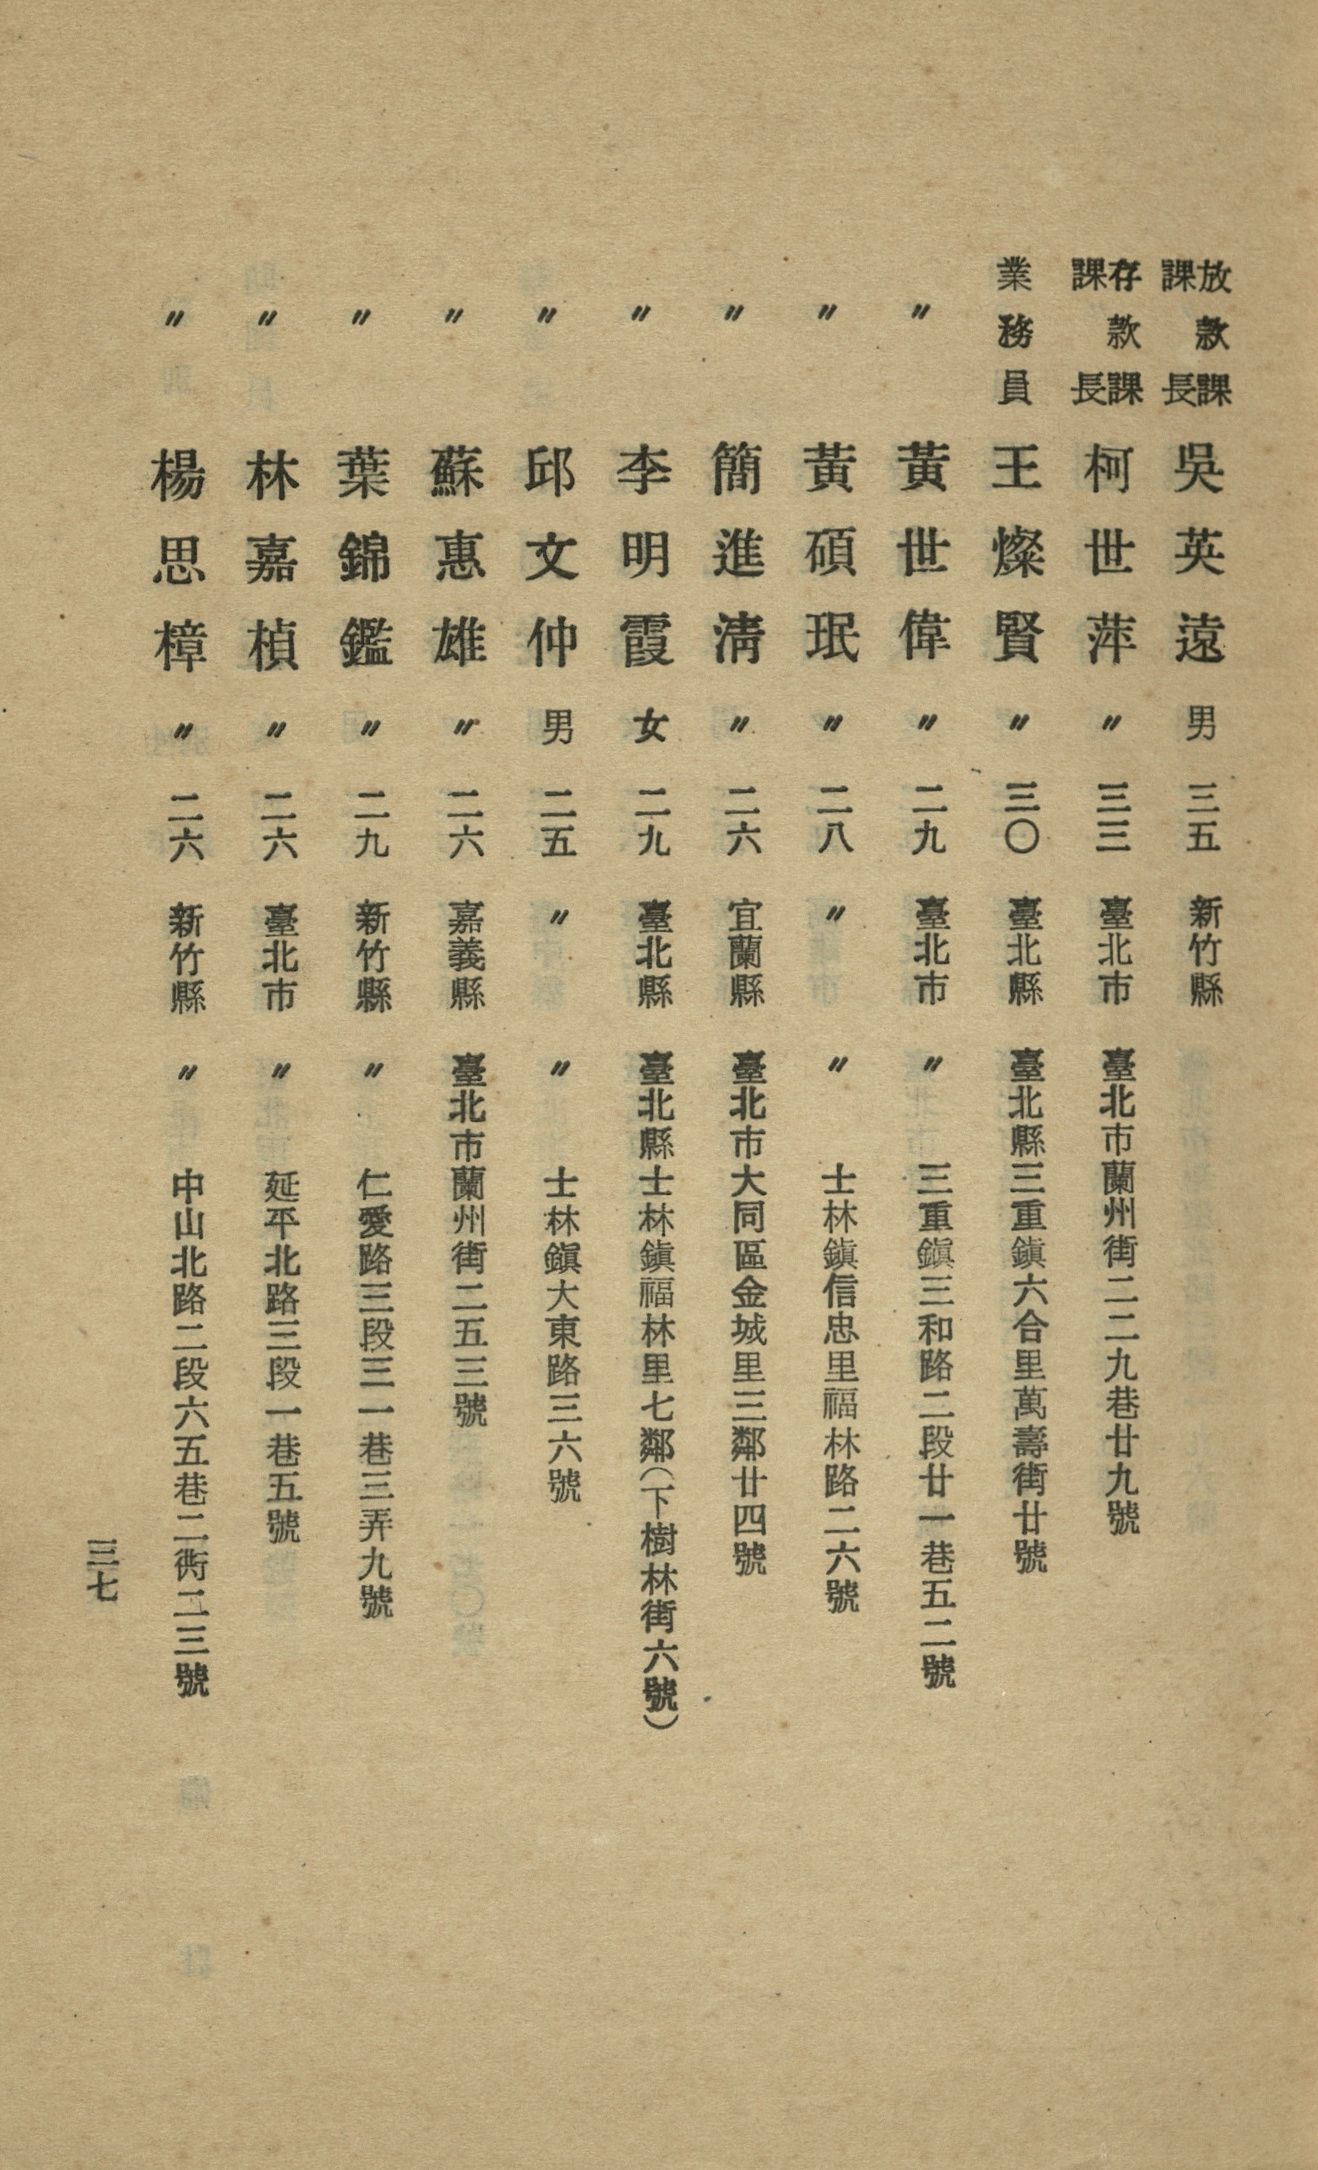 放款課課長 吳英遠 男 三五 新竹縣
存款課課長 柯世萍 〃 三三 臺北市 臺北市蘭州街二二九巷廿九號
業務員 王燦賢 〃 三〇 臺北縣 臺北縣三重鎮六合里萬壽街廿號
〃 黃世偉 〃 二九 臺北市 〃 三重鎮三和路二段廿一巷五二號
〃 黃碩珉 〃 二八 〃 〃 士林鎮信忠里福林路二六號
〃 簡進淸 〃 二六 宜蘭縣 臺北市大同區金城里三鄰廿四號
〃 李明霞 女 二九 臺北縣 臺北縣士林鎮福林里七鄰(下樹林街六號)
〃 邱文仲 男 二五 〃 〃 士林鎮大東路三六號
〃 蘇惠雄 〃 二六 嘉義縣 臺北市蘭州街二五三號
〃 葉錦鑑 〃 二九 新竹縣 〃 仁愛路三段三一巷三弄九號
〃 林嘉楨 〃 二六 臺北市 〃 延平北路三段一巷五號
〃 楊思樟 〃 二六 新竹縣 〃 中山北路二段六五巷二衖二三號
三七